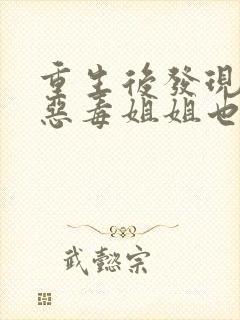 重生後發現
惡毒姐姐也
武懿宗